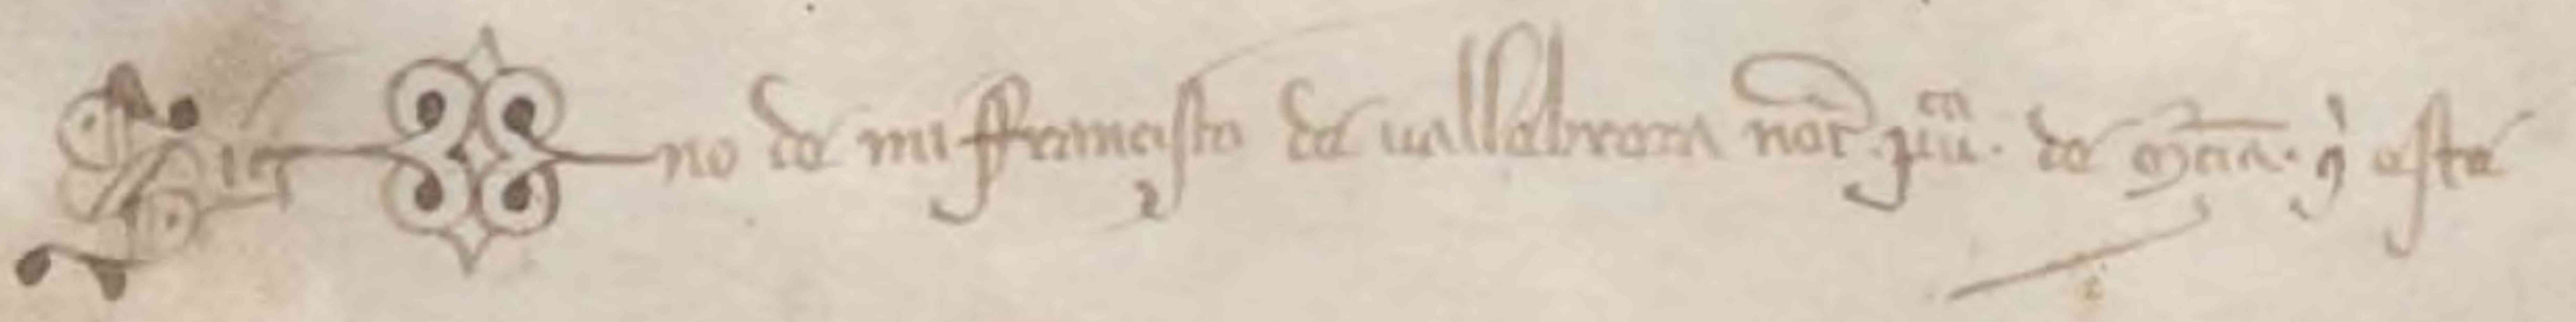 Sig no de mi ffrancisco de vallebrera not pucn. de mcia. q este